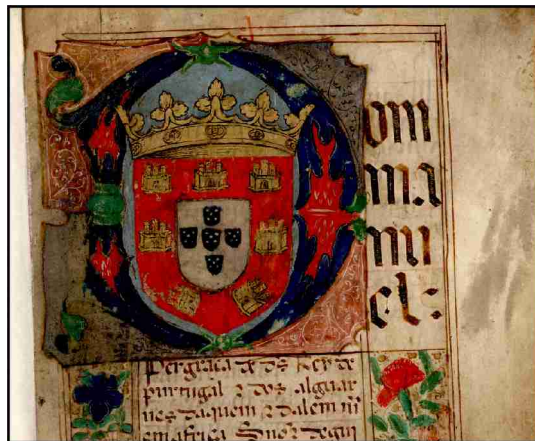 Dom
ma
nu
el:
Per graça de ds Rey de
purtugal z dos alguar
ues daquem z dalem
em africa Snor de gui